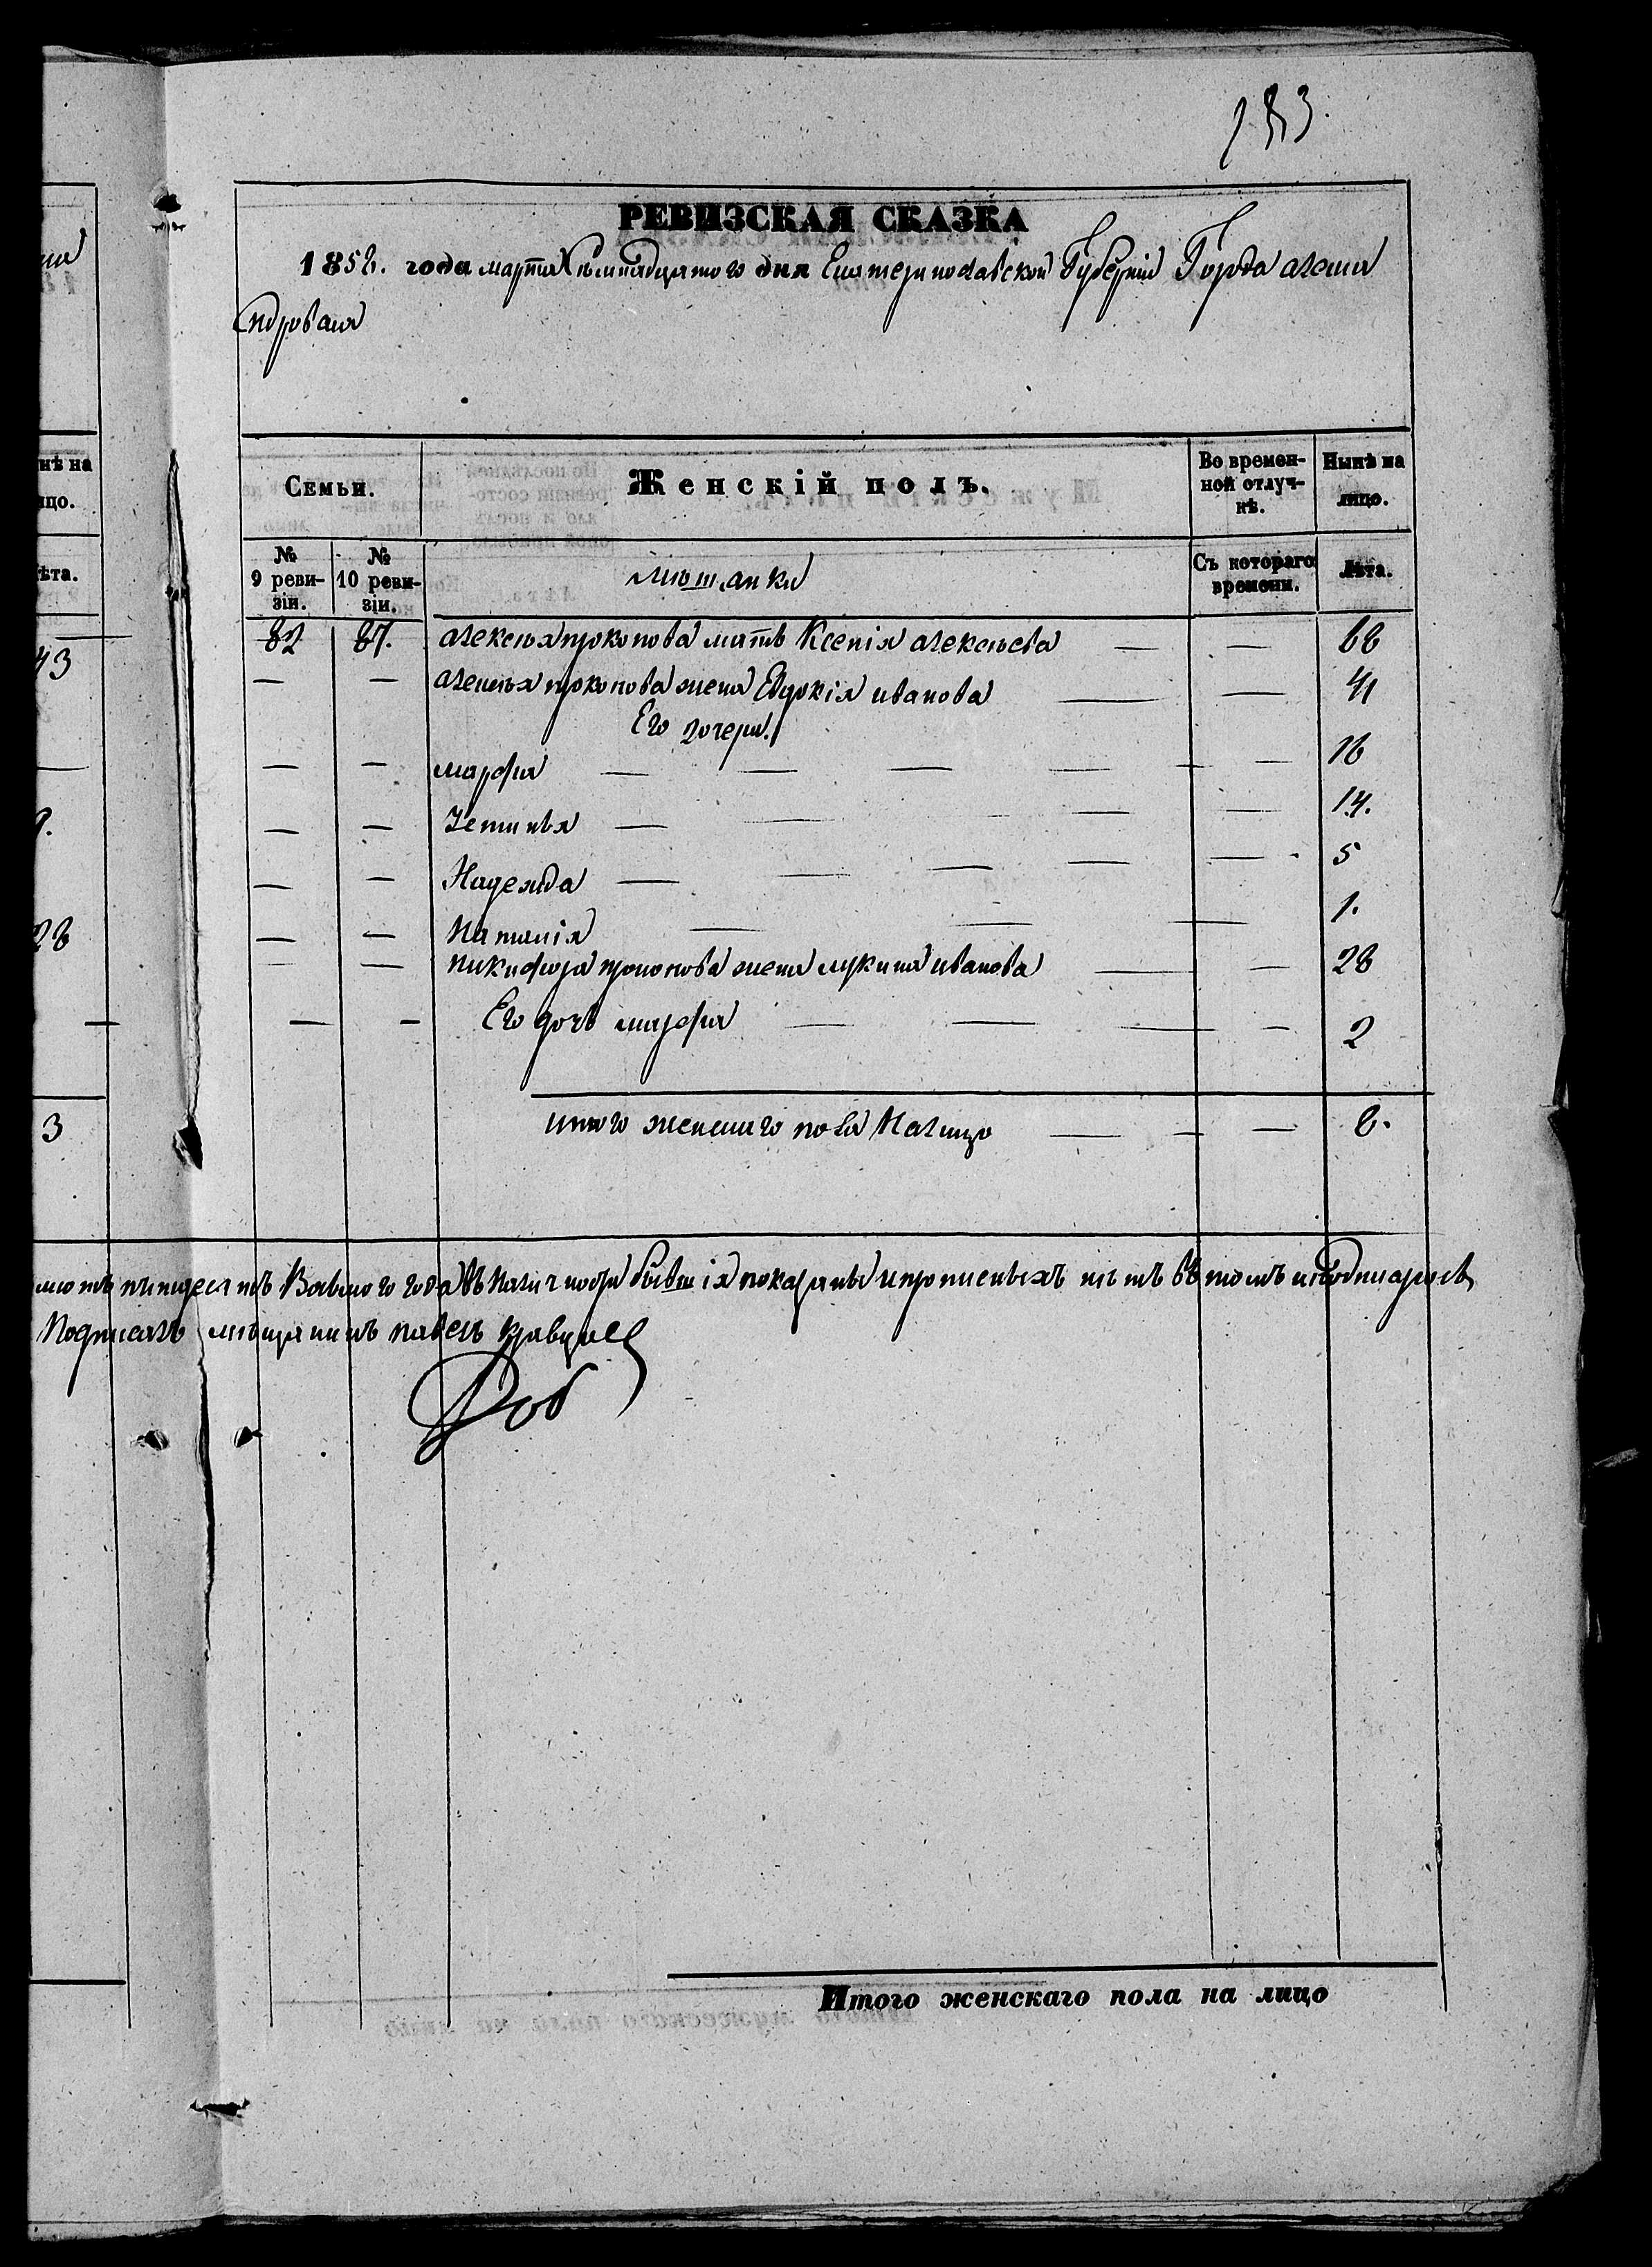 283.
РЕВИЗСКАЯ СКАЗКА
1858. года марта семнадцатого дня Екатеринославской Губерніи Города алекса
ндровска
нѣ на
ицо.
ѣта.
43
28
3
Семьи.
Женскій полъ.
Во времен-
ной отлуч-
кѣ.
Нынѣ на
лицо.
№
9 реви-
зіи.
№
10 реви-
зіи.
мѣщанки
Съ котораго
времени.
Лѣта.
82 87. алексѣя прокопова мать Ксенія алексѣева — — 68
— — алексѣя прокопова жена Евдокія иванова — — 41
Его дочери.
— — марфа — — — — — — 16
— — Устинья — — — — — 14.
— — Надежда — — — — — 5
— — Наталія — — — — 1.
— — никифора прокопова жена лукия иванова — — 28
— — — Его дочь марфа — — — — 2
итого женскаго пола На лицо — — — 8.
пятдесятъ Восьмого года Въ наличности бывшія показаны и прописныхъ нѣтъ въ томъ и подписуюсь
Подписалъ мѣщанинъ павелъ кравцовъ
Итого женскаго пола на лицо